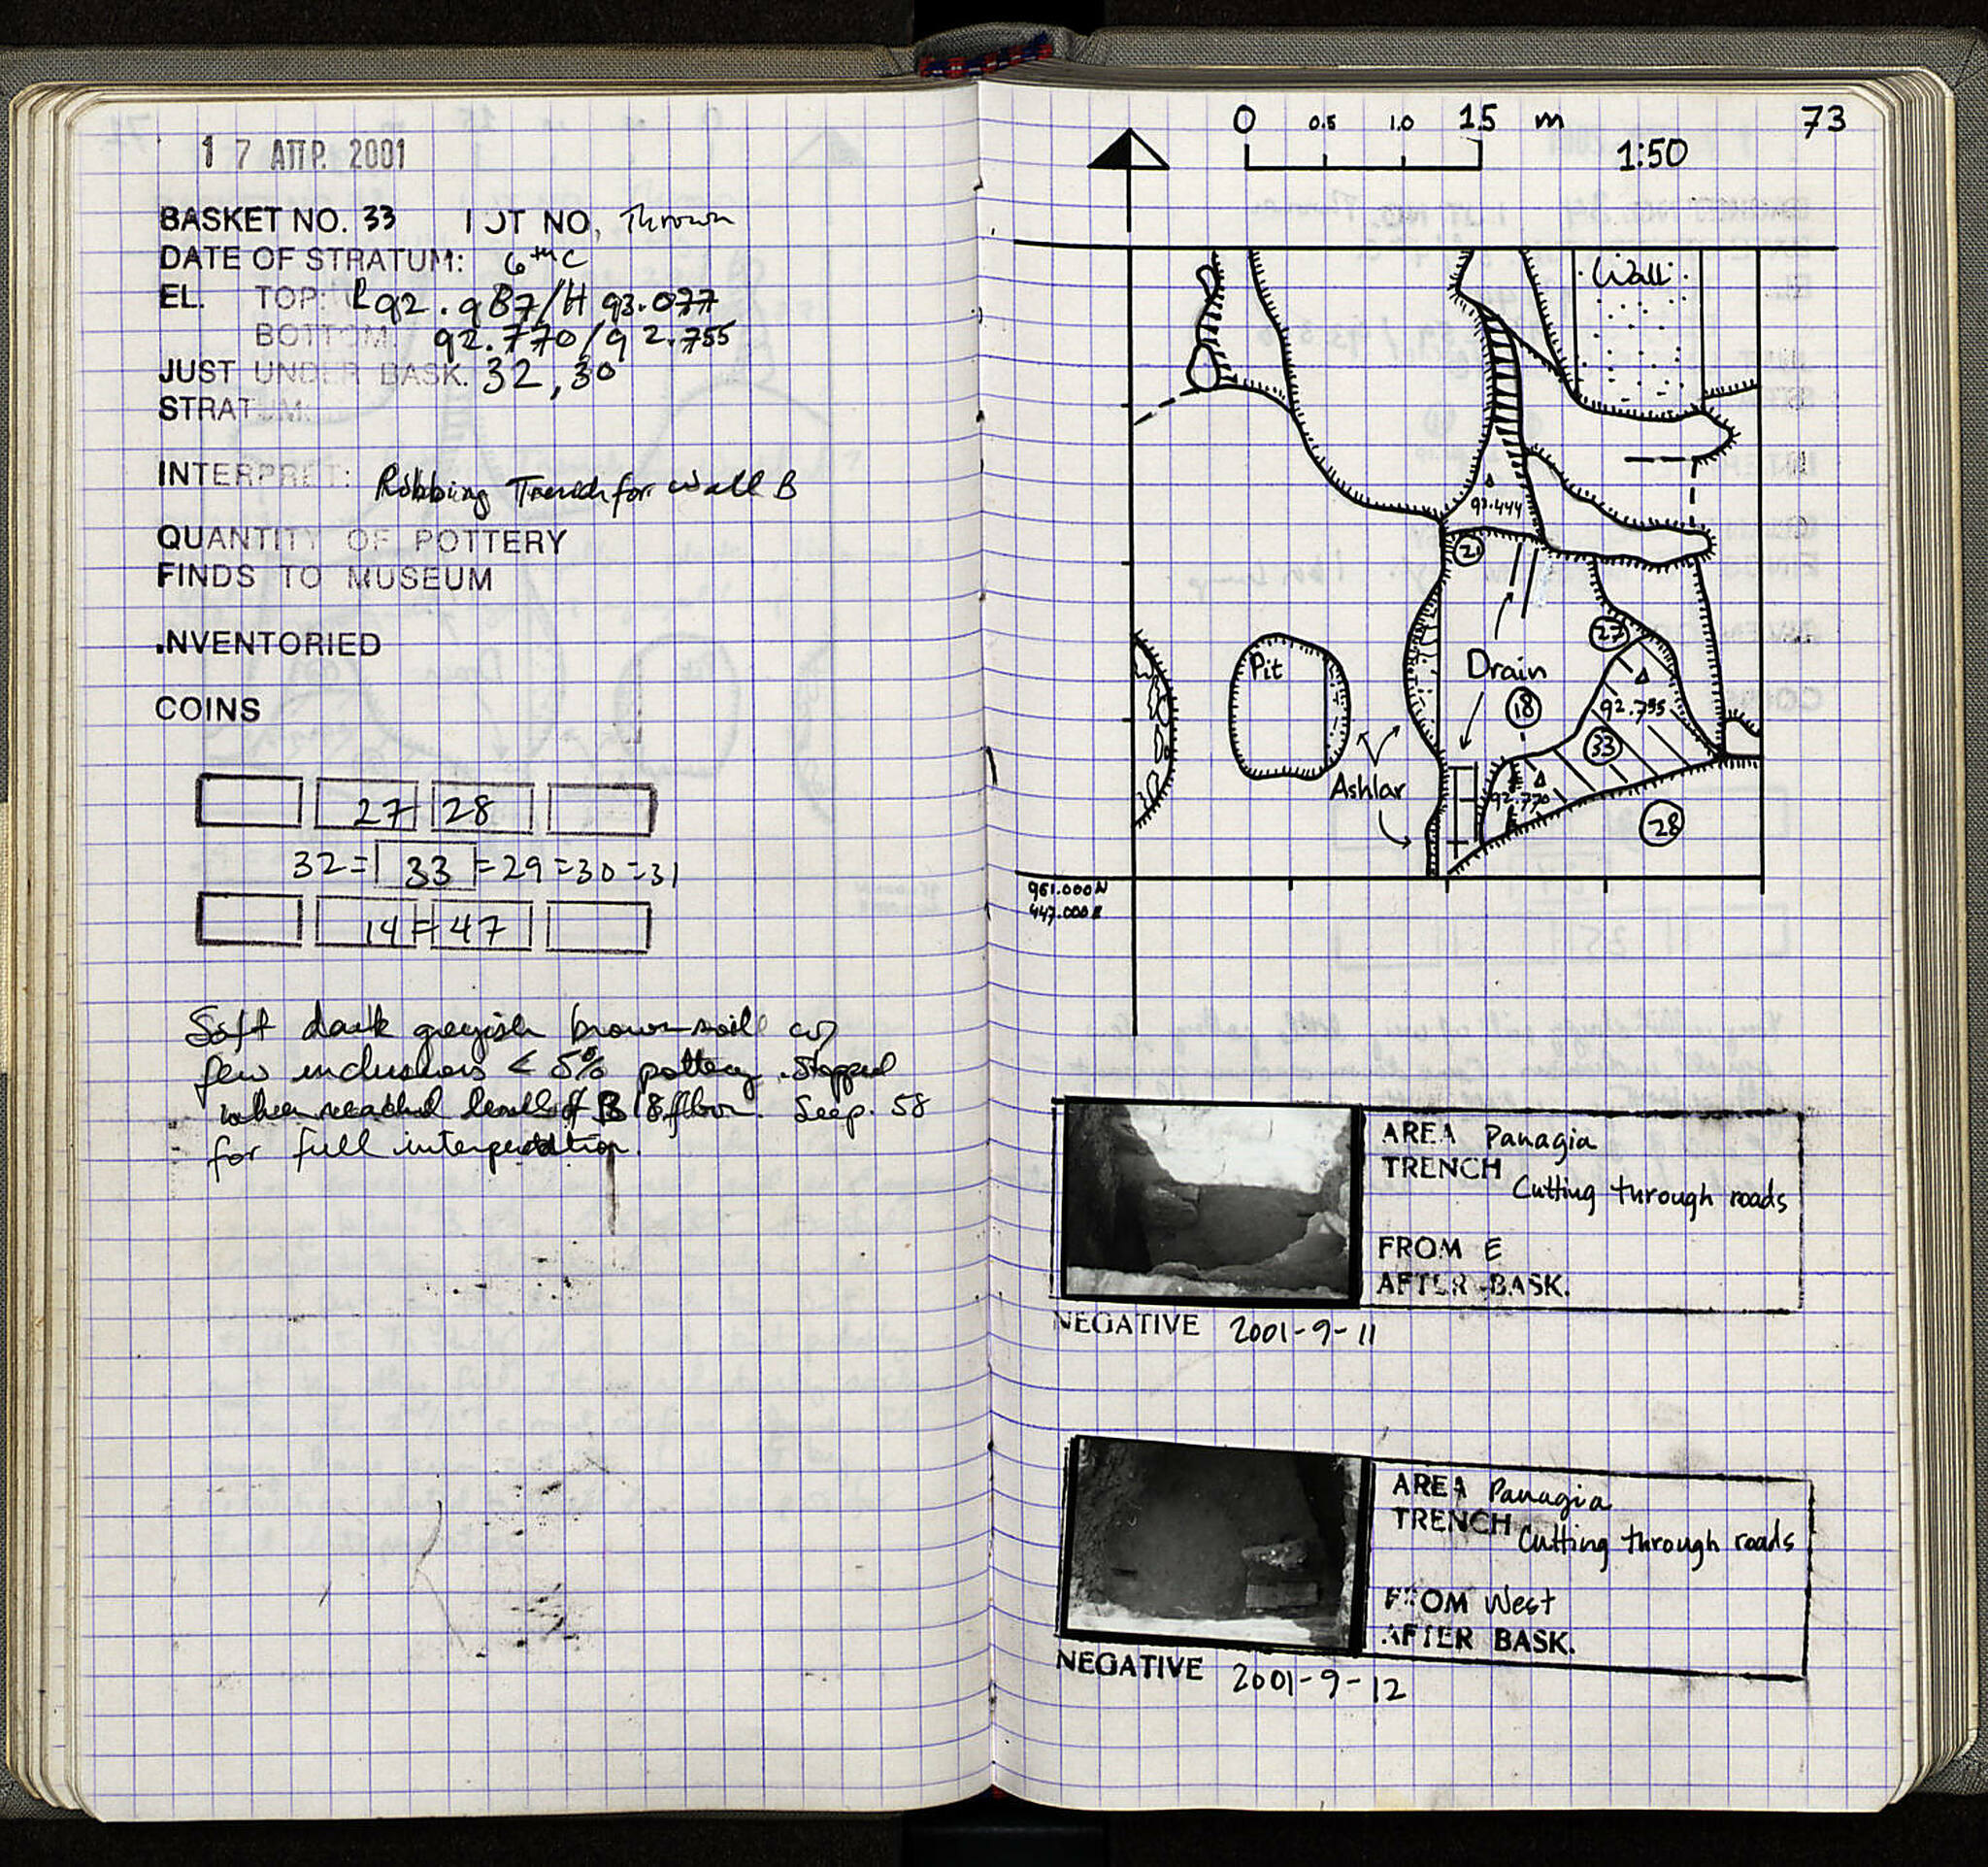 1 7 ΑΠΡ. 2001
BASKET NO. 33 LOT NO, Thrown
DATE OF STRATUM: 6th C
EL. TOP: L92.987/H 93.077
BOTTOM: 92.770/92.755
JUST UNDER BASK. 32, 30
STRATUM:
INTERPRET: Robbing Trench for Wall B
QUANTITY OF POTTERY
FINDS TO MUSEUM
INVENTORIED
COINS
27 28
32= 33 =29=30=31
14=47
Soft dark greyish brown soil w/
few inclusions < 5% pottery. Stopped
when reached level of B18 floor. See p. 58
for full interpretation.
73
0 0.5 1.0 15 m
1:50
Wall
93.444
21
27
Pit
Drain
18
92.755
33
Ashlar
92.770
28
961.000N
447.000E
AREA Panagia
TRENCH Cutting through roads
FROM E
AFTER BASK.
NEGATIVE 2001-9-11
AREA Panagia
TRENCH Cutting through roads
FROM West
AFTER BASK.
NEGATIVE 2001-9-12